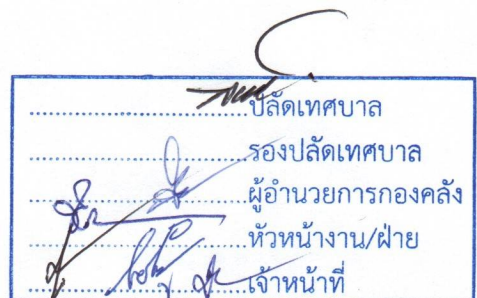 ....................ปลัดเทศบาล
....................รองปลัดเทศบาล
....................ผู้อำนวยการกองคลัง
....................หัวหน้างาน/ฝ่าย
....................เจ้าหน้าที่